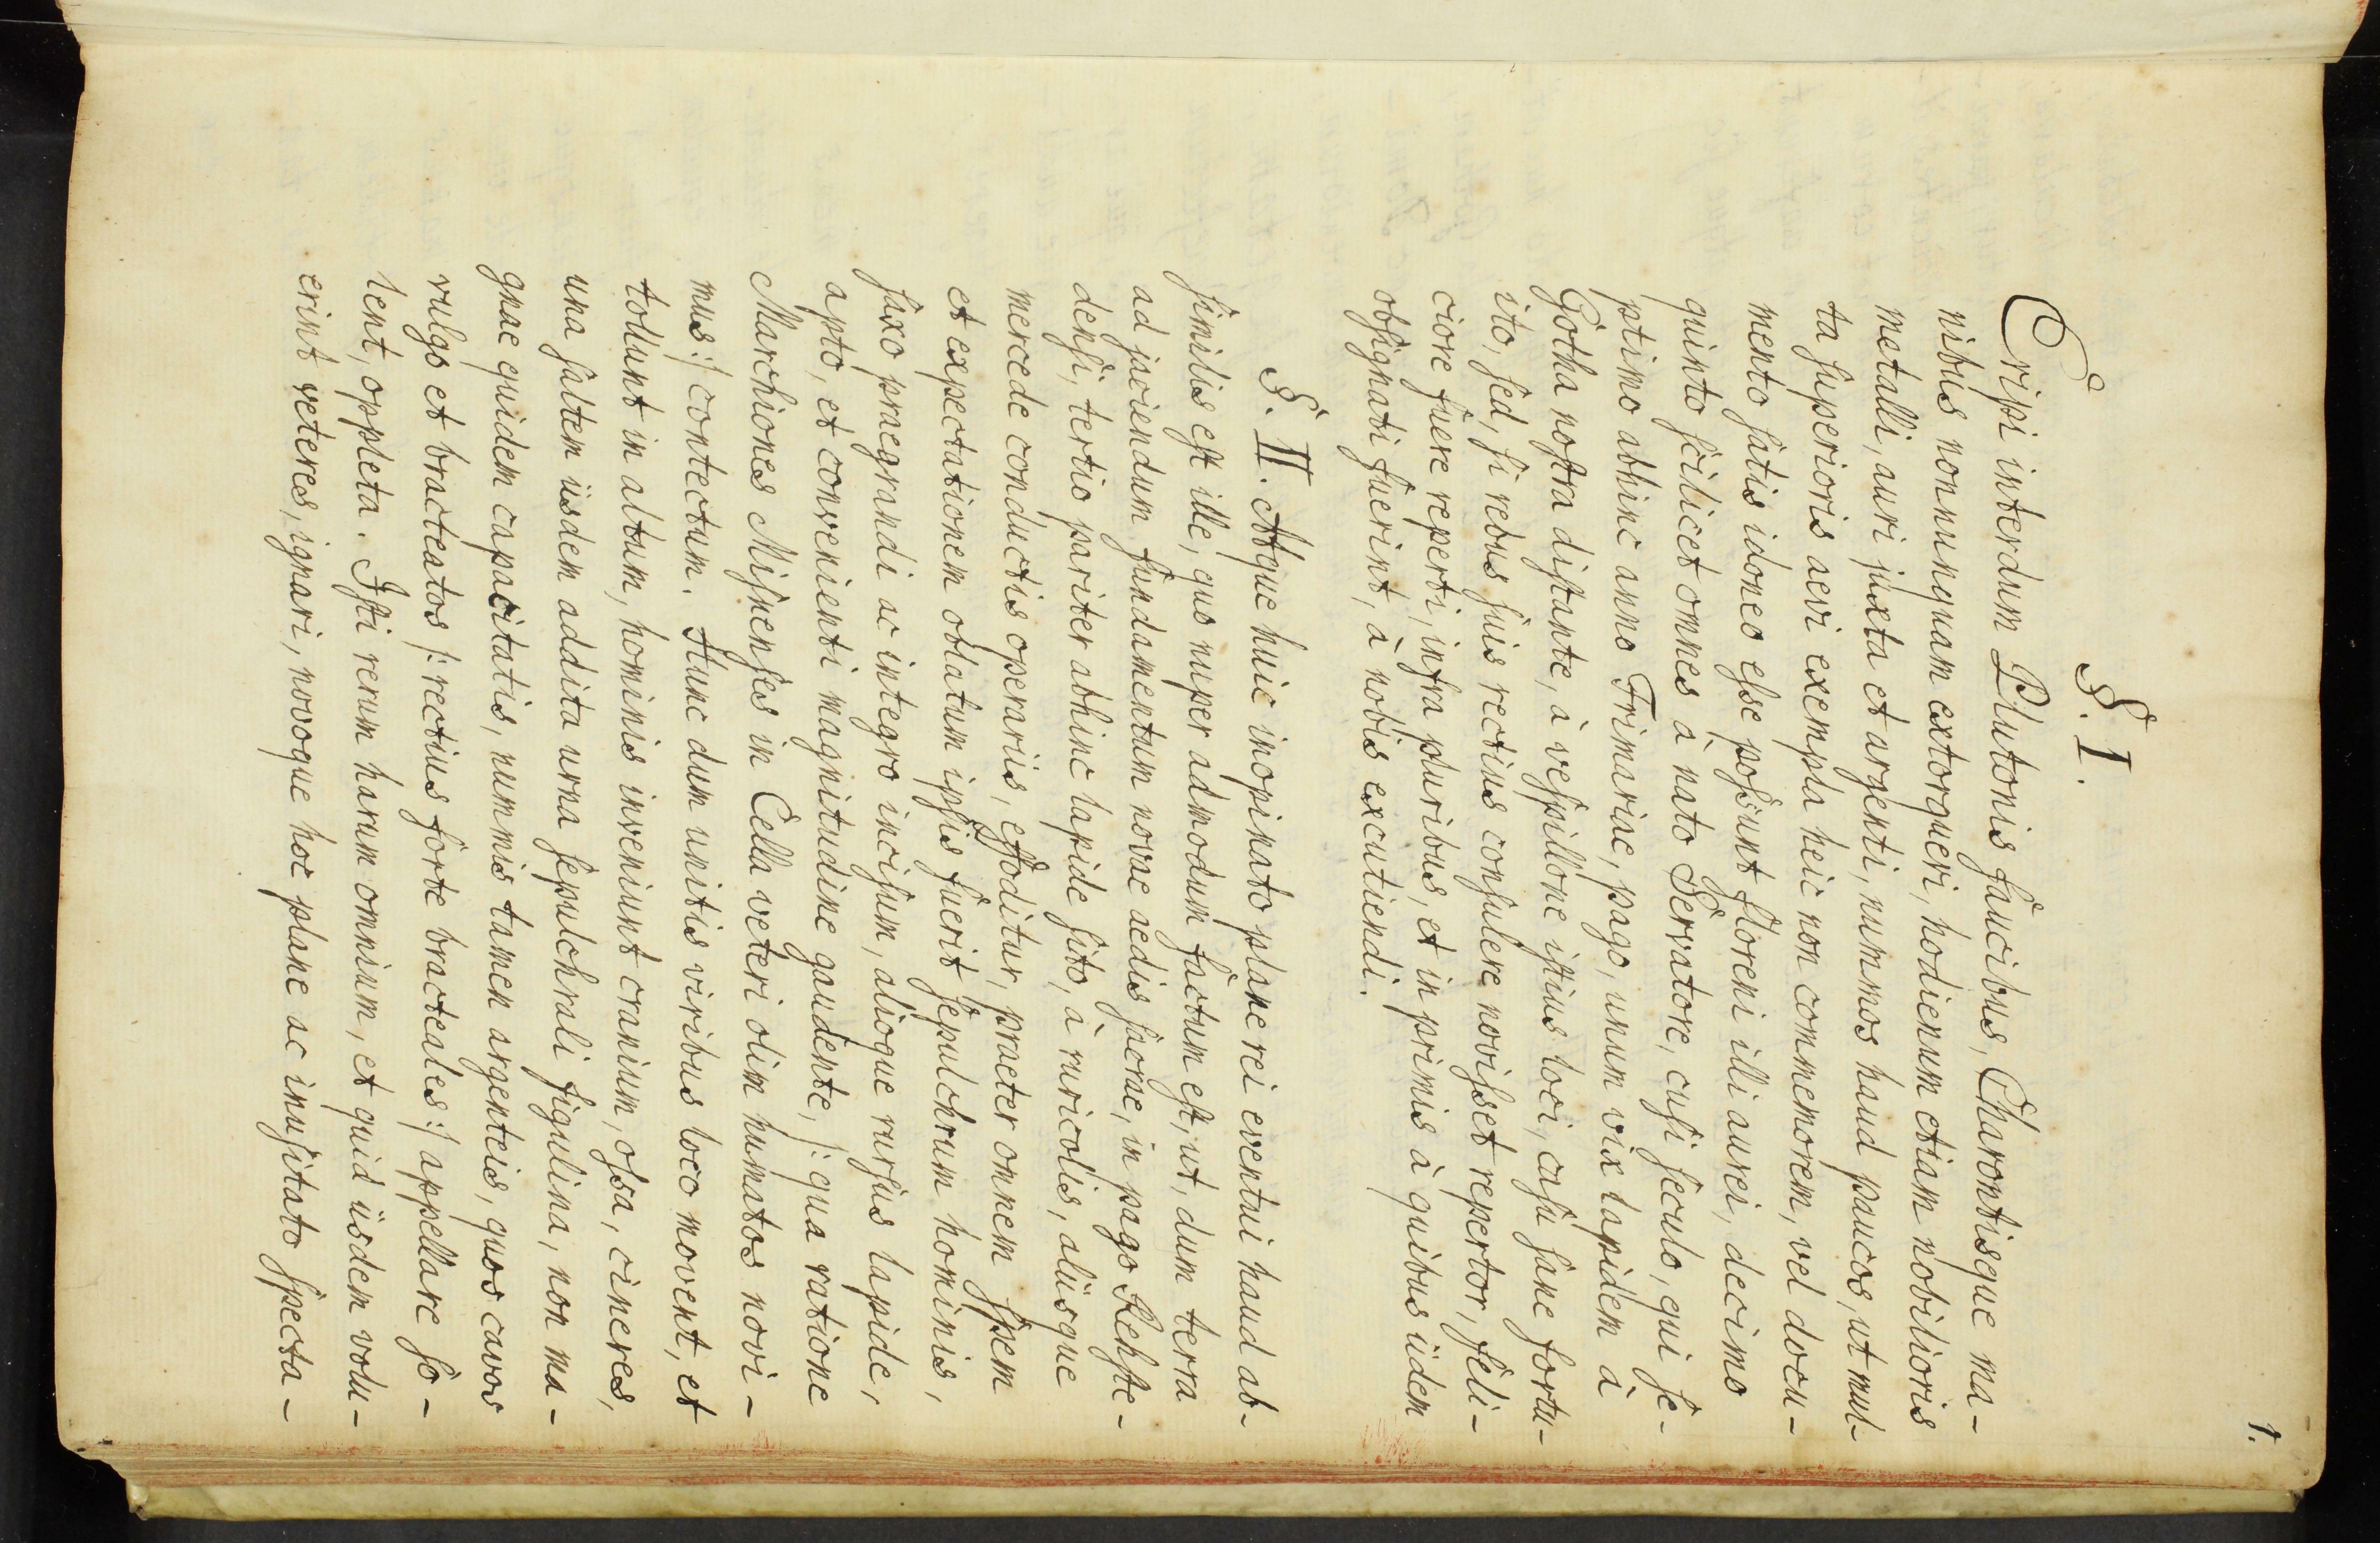 1.
§. I.
Eripi interdum Plutonis faucibus, Charontisque ma-
nibus nonnunquam extorqueri, hodienum etiam nobilioris
metalli, auri juxta et argenti, nummos haud paucos, ut mul-
ta superioris aevi exempla heic non commemorem, vel docu-
mento satis idoneo esse possunt floreni illi aurei, decimo
quinto scilicet omnes à nato Servatore, cusi seculo, qui se-
ptimo abhinc anno Frimariae, pago, unum vix lapidem à
Gotha nostra distante, à vespillone istius loci, casu sane fortu-
ito, sed, si rebus suis rectius consulere novisset repertor, feli-
ciore fuere reperti, infra pluribus, et in primis à quibus iidem
obsignati fuerint, à nobis excutiendi.
§. II. Atque huic inopinato plane rei eventui haud ab-
similis est ille, quo nuper admodum factum est, ut, dum terra
ad jaciendum fundamentum novae aedis sacrae, in pago Rehste-
densi, tertio pariter abhinc lapide sito, à ruricolis, aliisque
mercede conductis operariis, effoditur, praeter omnem spem
et expectationem oblatum ipsis fuerit sepulchrum hominis,
saxo praegrandi ac integro incisum, alioque rursus lapide,
apto, et convenienti magnitudine gaudente, /: qua ratione
Marchiones Misnenses in Cella veteri olim humatos novi-
mus :/ contectum. Hunc dum unitis viribus loco movent, et
tollunt in altum, hominis inveniunt cranium, ossa, cineres,
una saltem iisdem addita urna sepulchrali figulina, non ma-
gnae quidem capacitatis, nummis tamen argenteis, quos cavos
vulgo et bracteatos /: rectius forte bracteales :/ appellare so-
lent, oppleta. Isti rerum harum omnium, et quid iisdem volu-
erint veteres, ignari, novoque hoc plane ac inusitato specta-